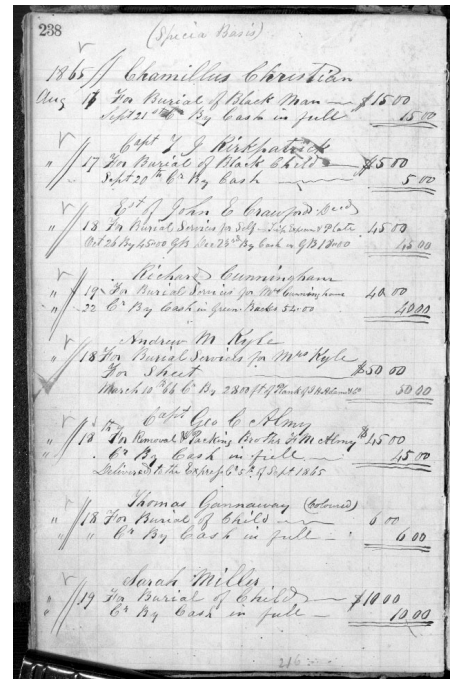 238
(Specia Basis)
1865 Chamillus Christian
Aug 17 For Burial of Black Man $15 00
Sept 21st Cr By Cash in full 15 00
Capt T J Kirkpatrick
" 17 For Burial of Black Child $5 00
Sept 20th Cr By Cash 5 00
Est of John E Crawford Decd
" 18 For Burial Services for Self Plate 45 00
Oct 26 By 45 00 G.B. Dec 23rd By Cash in G B 45 00
Richard Cunningham
" 19 For Burial Services for Mrs Cunningham 40 00
" 22 Cr By Cash in Green Backs 54 00 40 00
Andrew M Kyle
" 18 For Burial Services for Mrs Kyle
For Sheet $50 00
March 10th 66 Cr By 2800 ft of Plank of 50 00
Capt Geo C Almy
" 18 For Removal & Packing Brother F Mc Almy $45 00
" Cr By Cash in full 45 00
Delivered to the Express Co 5th of Sept 1865
Thomas Gannaway (Coloured)
" 18 For Burial of Child 6 00
" " Cr By Cash in full 6 00
Sarah Miller
" 19 For Burial of Child $10 00
" Cr By Cash in full 10 00
216